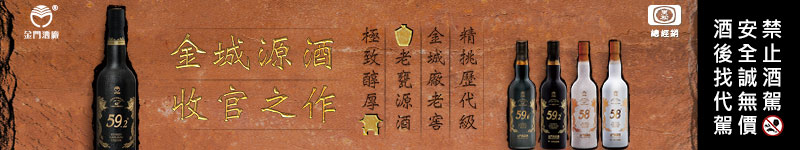 金門酒廠
®
59.2
金城源酒
收官之作
精挑歷代級
金城廠老窖
老甕源酒
極致醇厚
59.2
59.2
58
58
總經銷
禁止酒駕
安全誠無價
酒後找代駕